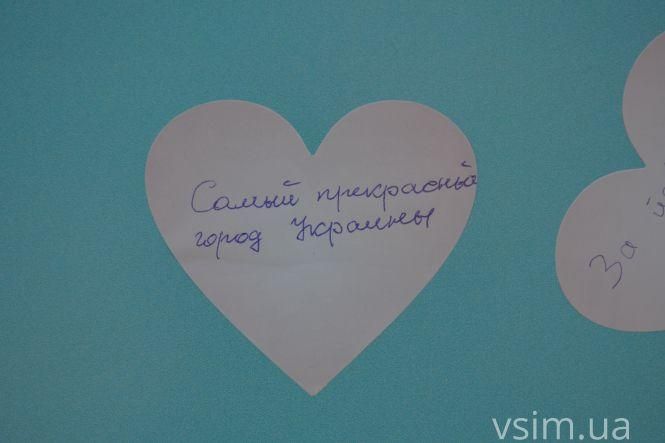 Самый прекрасный
город Украины
За
vsim.ua